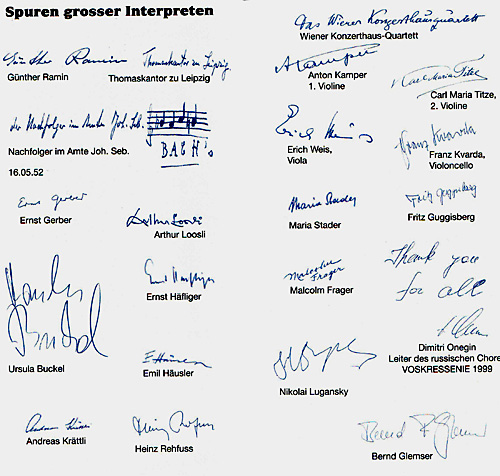 Spuren grosser Interpreten
Günther Ramin Thomaskantor zu Leipzig
Günther Ramin
Thomaskantor zu Leipzig
der Nachfolger im Amte Joh. Seb.
BACH's
Nachfolger im Amte Joh. Seb.
16.05.52
Ernst Gerber
Ernst Gerber
Arthur Loosli
Arthur Loosli
Ernst Haefliger
Ernst Häfliger
Ursula Buckel
Ursula Buckel
E Häusler
Emil Häusler
Andreas Krättli
Heinz Rehfuss
Heinz Rehfuss
Das Wiener Konzerthausquartett
Wiener Konzerthaus-Quartett
A Kamper
Anton Kamper
1. Violine
Carl Maria Titze,
Carl Maria Titze,
2. Violine
Erich Weis
Erich Weis,
Viola
Franz Kvarda
Franz Kvarda,
Violoncello
Maria Stader
Maria Stader
Fritz Guggisberg
Fritz Guggisberg
Malcolm Frager
Malcolm Frager
Thank you
for all
Dimitri Onegin
Leiter des russischen Chore
VOSKRESSENIE 1999
Nikolai Lugansky
Bernd Glemser
Bernd Glemser